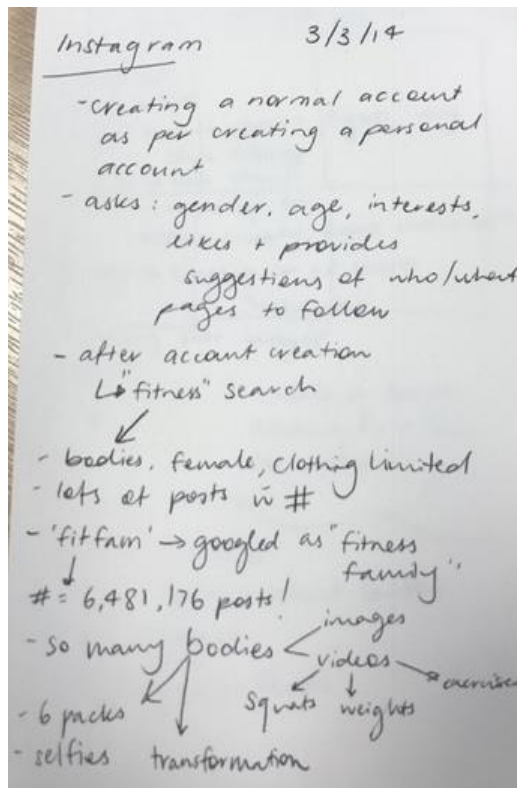 Instagram 3/3/14
- creating a normal account
as per creating a personal
account
- asks: gender, age, interests,
likes + provides
suggestions of who/what
pages to follow
- after account creation
↳ "fitness" search
- bodies, female, clothing limited
- lots of posts w̄ #
- 'fitfam' → googled as "fitness
family"
# = 6,481,176 posts!
images
- so many bodies < videos → exercises
- 6 packs squats weights
- selfies transformation